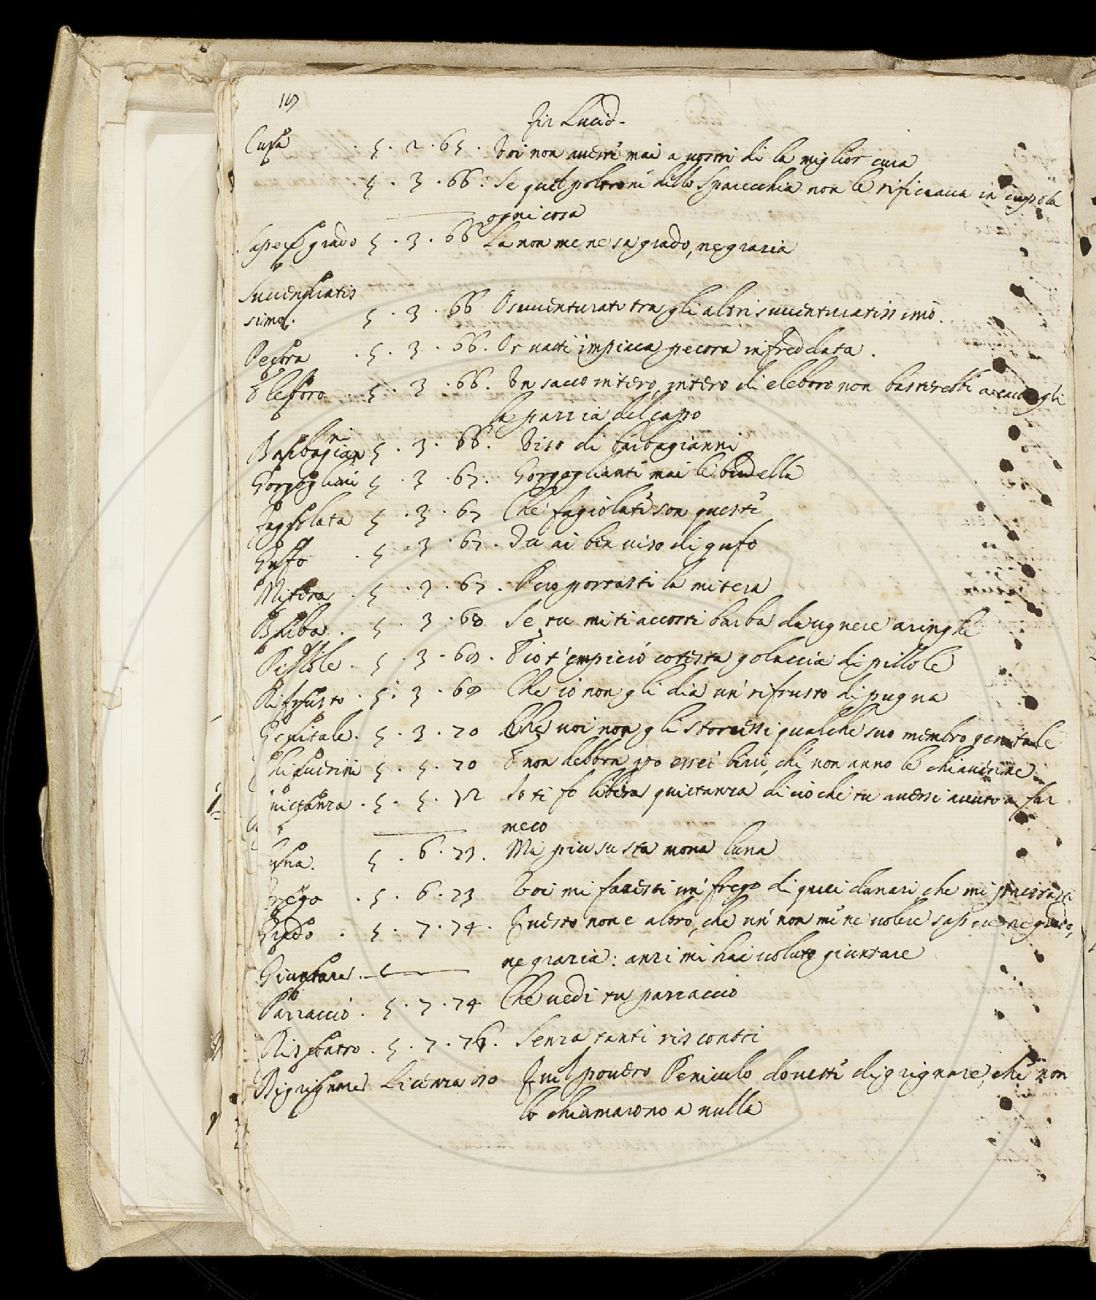 Fir. Lucid.
Cupa . 5 . 2 . 65 . Voi non avesti mai a vostri dì la miglior cura
5 . 3 . 66 . Se quel poltrone dello Sparecchia non le rificcava in cupola
ogni cosa
Saper grado 5 . 3 . 66 La non me ne sa grado, ne grazia
Svventuratis
simo. 5 . 3 . 66 O svventurato tra gli altri svventuratissimo.
Pecora . 5 . 3 . 66 . Or vatti impicca pecora infreddata .
Elleboro . 5 . 3 . 66 . Un sacco intero, intero di elleboro non basterebbe a cavargli
la pazzia del capo
Barbagianni 5 . 3 . 66 Viso di barbagianni
Gorgogliare 5 . 3 . 67 . Gorgoglianti mai le budella
Fagiolata 5 . 3 . 67 Che fagiolate son queste
Gufo . 5 . 3 . 67 . Tu ai ben viso di gufo
Mitera . 5 . 3 . 67 . Però porrasti la mitera
Barba . 5 . 3 . 68 Se tu mi ti accosti barba da ugnere aringhe
Pillole . 5 . 3 . 69 . Io t'empierò cotesta golaccia di pillole
Rifrusto . 5 . 3 . 69 Che io non gli dia un rifrusto di pugna
Genitale . 5 . 3 . 70 Che voi non gli storcessi qualche suo membro genitale
Chiaverini 5 . 5 . 70 E non debbon gro esser birri, che non anno le chiaverine
Quietanza . 5 . 5 . 72 Io ti fo libera quietanza di ciò che tu avessi avuto a far
meco
Luna . 5 . 6 . 73 . Ma più su sta mona luna
Frego . 5 . 6 . 73 Voi mi faresti un frego di quei danari che mi
Grado . 5 . 7 . 74 . Questo non è altro, che un non me ne volere saper ne grado,
ne grazia : anzi mi hai voluto giuntare
Giuntare .
Pazzaccio . 5 . 7 . 74 Che vedi tu pazzaccio
Riscontro . 5 . 7 . 76 . Senza tanti riscontri
Digrignare Licenza oro Quel povero Peniculo dovette digrignare, che non
lo chiamarono a nulla